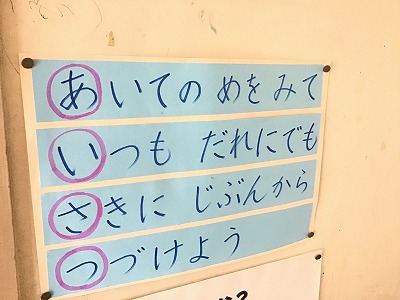 あいての めを みて
いつも だれにでも
さきに じぶんから
つづけよう